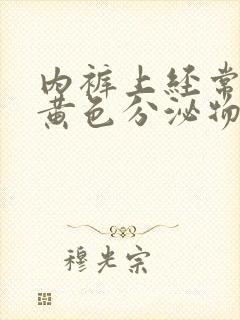 内裤上经常
黄色分泌物
穆光宗